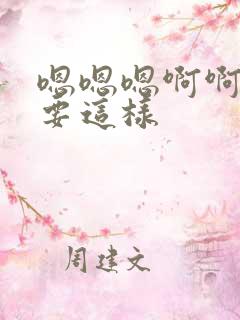 嗯嗯嗯啊啊
要這樣
周建文